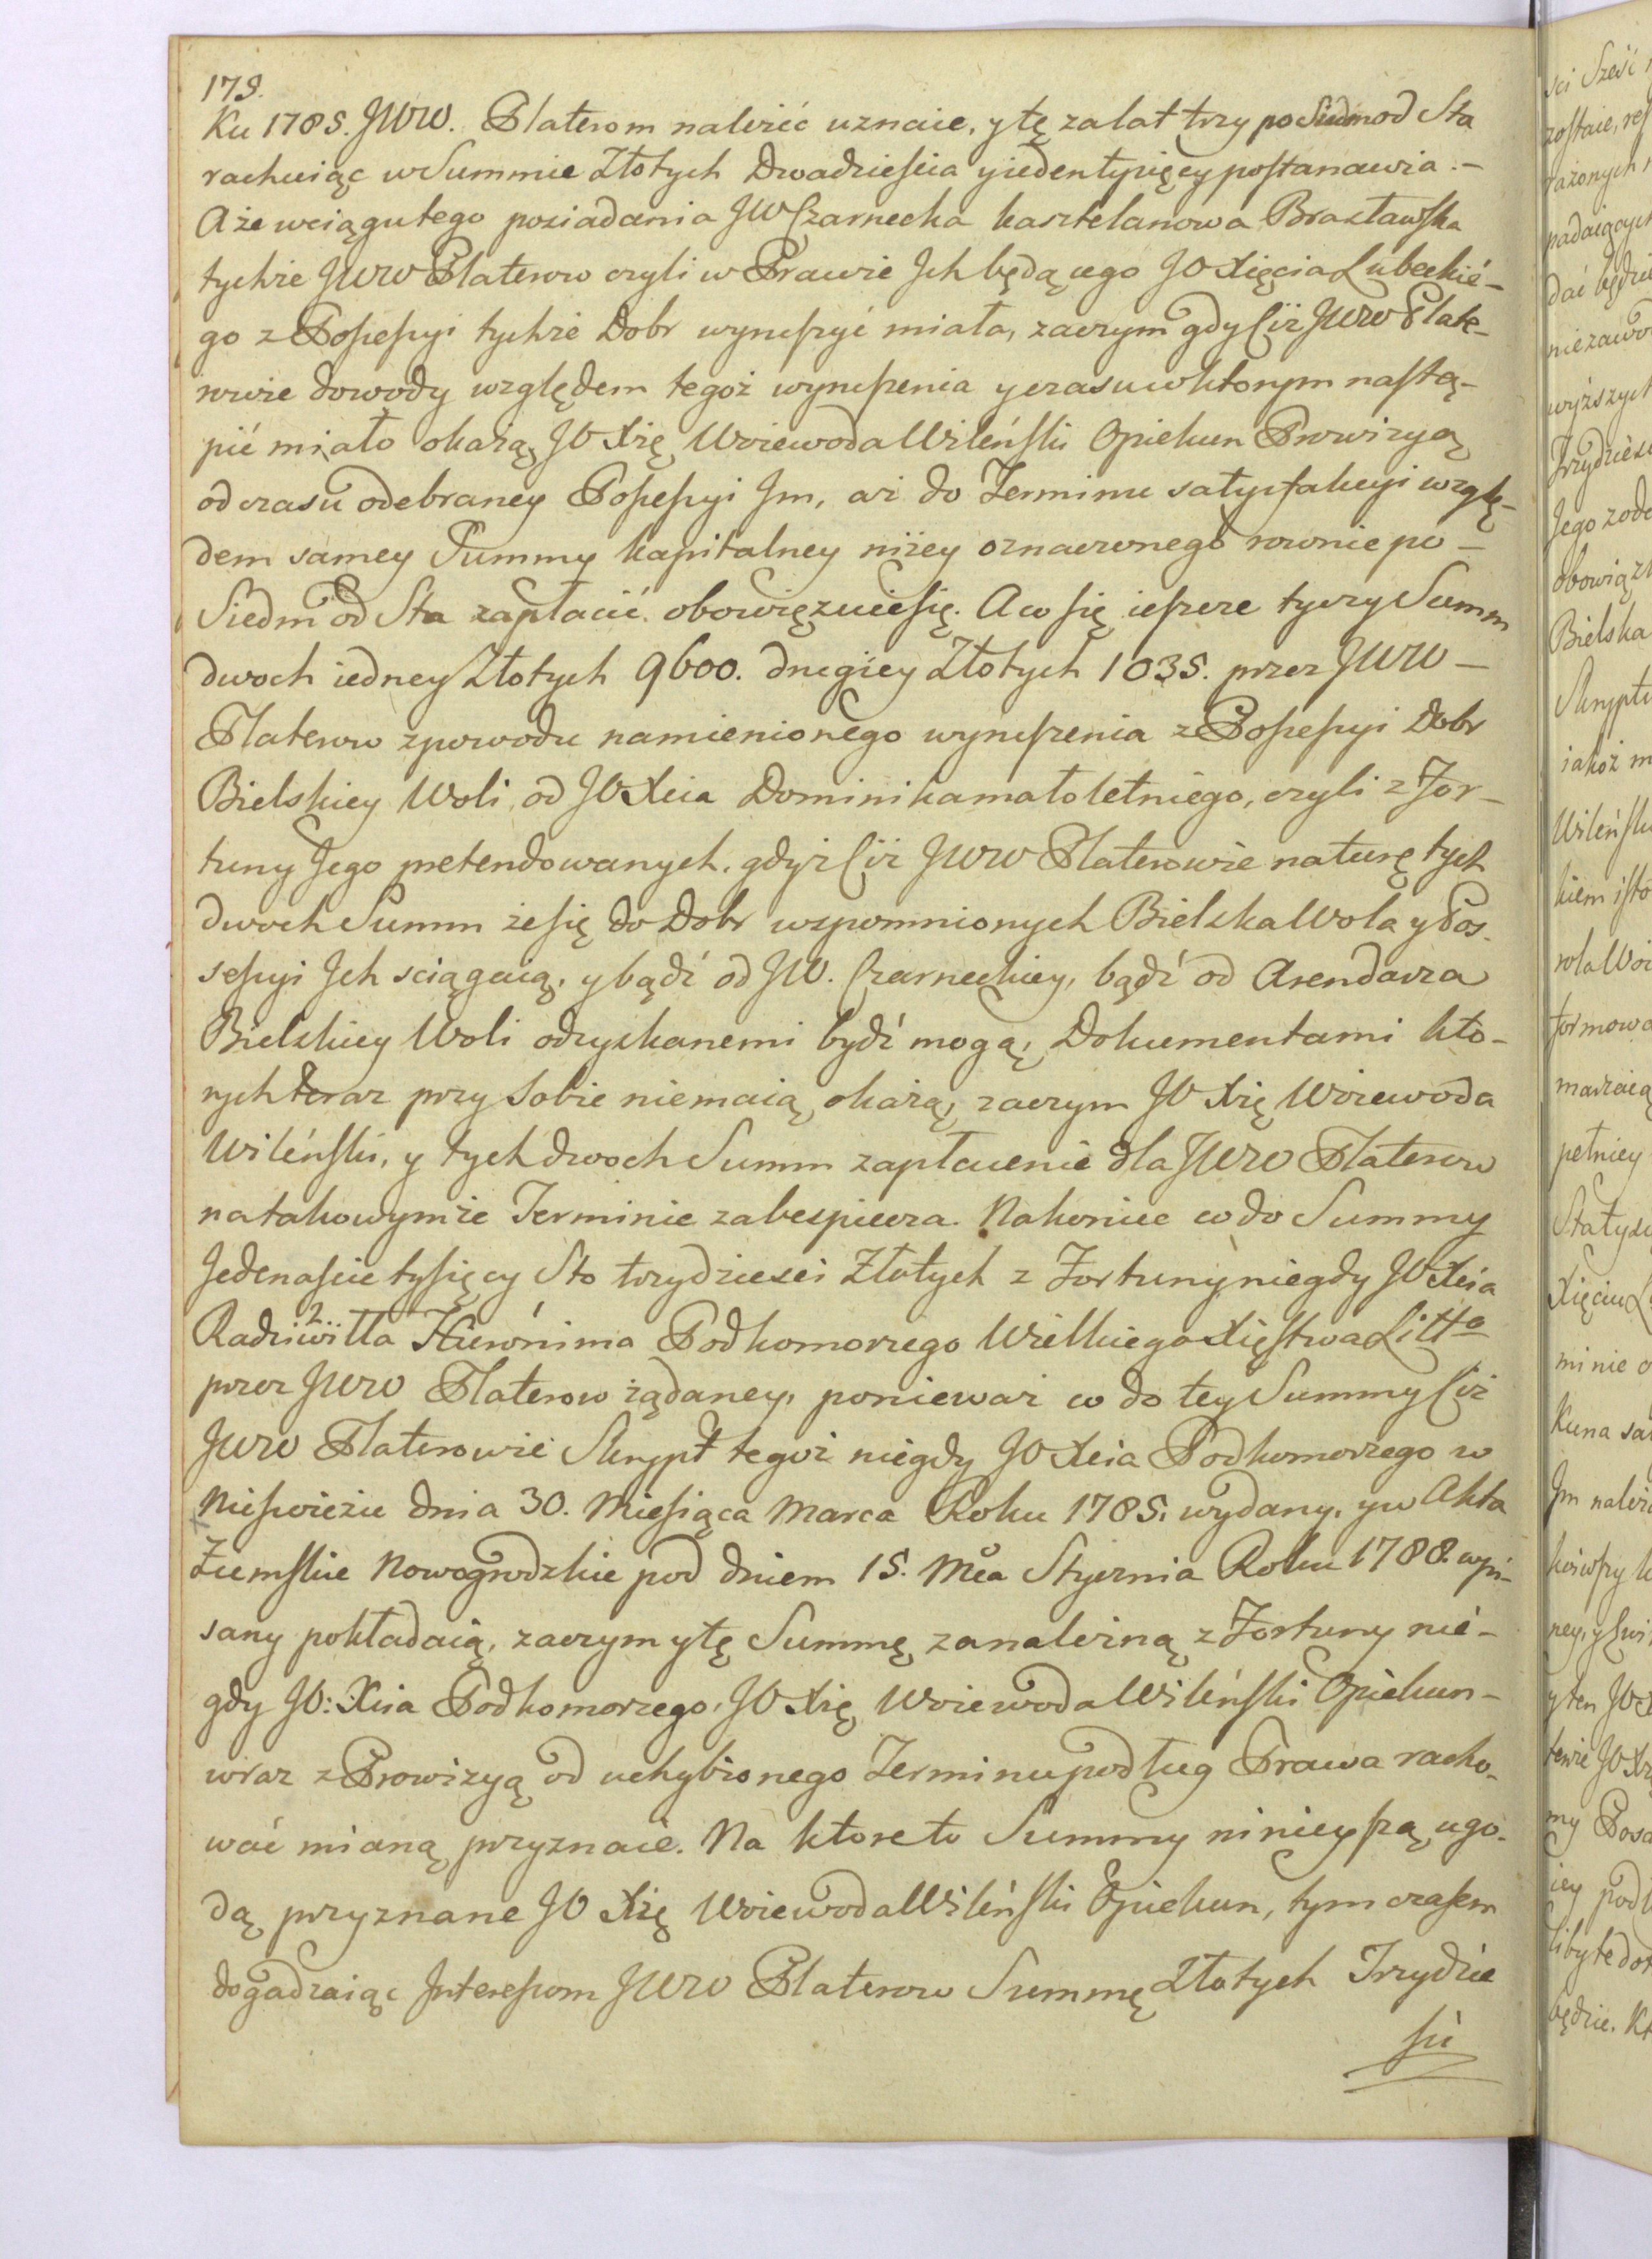 179.
Ku 1785. JWW. Platerom należéć uznaie, y tę za lat trzy po Siedm od Sta
rachuiąc w Summie Złotych Dwadzieścia y ieden tysięcy postanawia.-
A że w ciągu tego posiadania JW Czarnecka kasztelanowa Bracławska
tychże JWW Platerow czyli w Prawie Jch będącego JO Xięcia Lubeckié-
go z Possessyi tychże Dobr wyruszyć miała, zaczym gdy Ciż JWW Plate-
rowie dowody względem tegoż wyruszenia y czasu w ktorym nastą-
pić miało okażą, JO Xię Woiewoda Wileński Opiekun Prowizyą
od czasu odebraney Possessyi Jm, aż do Terminu satysfakcyi wzglę-
dem samey Summy kapitalney niżey oznaczonego rownie po-
Siedm od Sta zapłacić obowięzuie się. A co się ieszcze tyczy Summ
dwoch iedney Złotych 9600. drugiey Złotych 1035. przez JWW-
Platerow z powodu namienionego wyruszenia z Possessyi Dobr
Bielskiey Woli, od JO Xcia Dominika małoletniego, czyli z For-
tuny Jego pretendowanych, gdyż Ciż JWW Platerowie naturę tych
dwoch Summ że się do Dobr wspomnionych Bielska Wola y Pos-
sessyi Jch sciągaią, y bądź od JW. Czarneckiey, bądź od Arendarza
Bielskiey Woli odzyskanemi bydź mogą, Dokumentami kto-
rych teraz przy sobie niemaią, okażą, zaczym JO Xię Woiewoda
Wileński, y tych dwoch Summ zapłacenie dla JWW Platerow
na takowymże Terminie zabespiecza. Nakoniec co do Summy
Jedenaście tysięcy Sto trzydzieści Złotych z Fortuny niegdy JO Xcia
Radziwiłła Hieronima Podkomorzego Wielkiego Xięstwa Litto
przez JWW Platerow żądaney, ponieważ co do tey Summy Ciż
JWW Platerowie Skrypt tegoż niegdy JO Xcia Podkomorzego w
Nieswieżu dnia 30. Miesiąca Marca Roku 1785. wydany, y w Akta
Ziemskie Nowogrodzkie pod dniem 15. Mca Stycznia Roku 1788. wpi-
sany pokładaią, zaczym y tę Summę za należną z Fortuny nie-
gdy JO: Xcia Podkomorzego, JO Xię Woiewoda Wileński Opiekun-
wraz z Prowizyą od uchybionego Terminu podług Prawa racho-
wać mianą przyznaie. Na ktore to Summy ninieyszą ugo-
dą przyznane JO Xię Woiewoda Wileński Opiekun, tym czasem
dogadzaiąc Interessom JWW Platerow Summę Złotych Trzydzie
sci